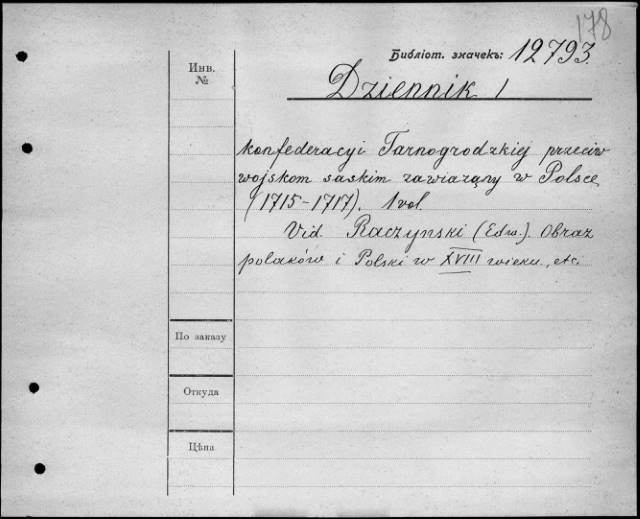 178
Библіот. значекъ: 12793
Инв.
№
Dziennik /
konfederacyi Tarnogrodzkiej przeciw
wojskom saskim zawiązany w Polsce
(1715-1717). 1 vol.
Vid. Raczynski (Edw.). Obraz
polaków i Polski w XVIII wieku, etc.
По заказу
Откуда
Цѣна